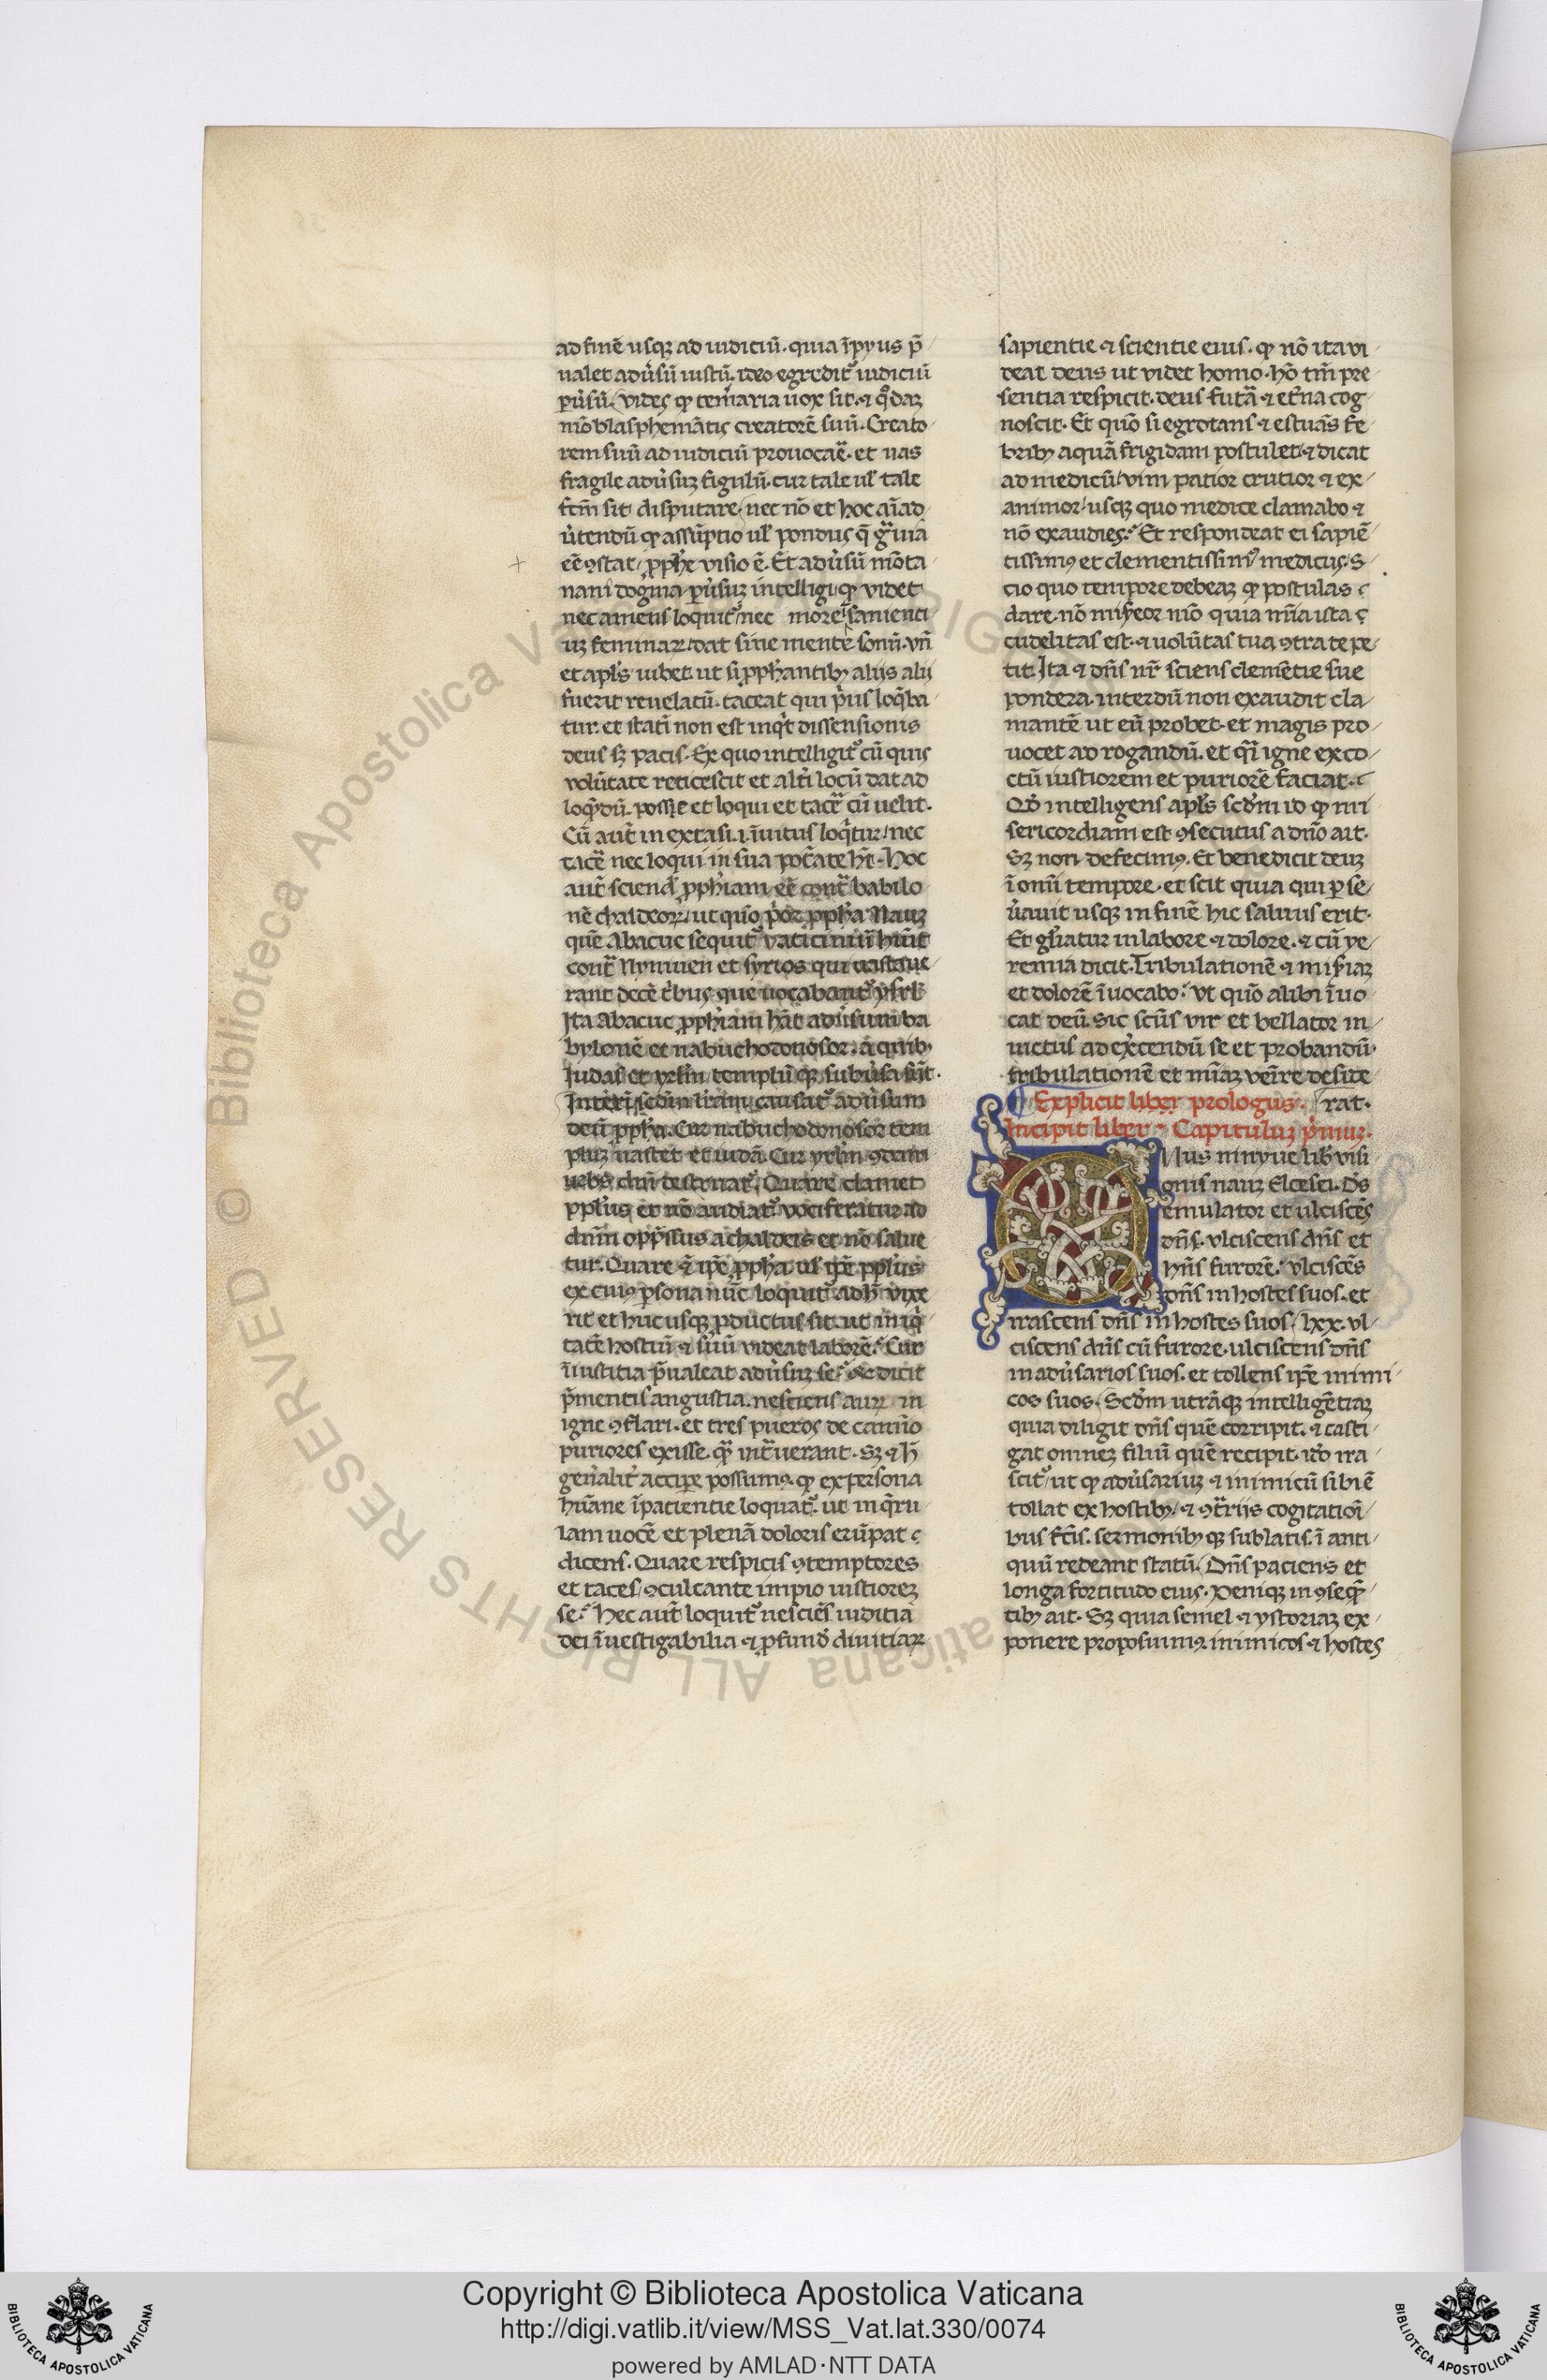 ad finē usqꝫ ad iudiciū. quia īpyus p̄
ualet adūsū iustū. ideo egredit᷑ iudiciū
ꝑūsū. Vides ꝙ tem̄aria uox sit. ⁊ q̊daꝫ
mō blasphemātis creatorē suū. Creato
rem suū ad iudiciū prouocar̄. et uas
fragile adūsuꝫ figulū. cur tale uł tale
fctm̄ sit disputare. nec nō et hoc aīad
ūtendū ꝙ assūptio uł pondus q̄ gͣuia
eē ꝯstat. ꝓphe visio ē. Et adūsū mōta
nani dogma ꝑūsuꝫ intelligi. ꝙ videt
nec amens loquit᷑ nec more īsanienti
uꝫ feminaꝝ dat sine mente sonū. vn̄
et apl̄s iubet. ut si ꝓphantibꝫ alijs alij
fuerit reuelatū. taceat qui p̄us loq̄ba
tur. et statī non est inqt̄ dissensionis
deus sꝫ pacis. Ex quo intelligit᷑ cū quis
volūtate reticescit et altī locū dat ad
loqn̄dū. posse et loqui et tacer̄ cū uelit.
Cū aut̄ in extasi .i. īuitus loq̄tur nec
tacer̄ nec loqui in sua pot̄ate ht̄. Hoc
aut̄ sciend̄ ꝓphiam eē contͣ babilo
nē chaldeoꝝ. ut quō p̄or ꝓpha Nauꝫ
quē Abacuc sequit᷑ vaticiniū huit̄
contͣ Nyniuen et syrios qui uastaue
rant decē tͥbus que uocabant᷑ ysrl̄
Ita Abacuc ꝓphiam hāt adūsum ba
bylonē et nabuchodonosor. a quibꝫ
Iudas et yrl̄m templū qꝫ subūsa sūt.
Interī scdm̄ lr̄am causat᷑ adūsum
deū ꝓpha. Cur nabuchodonosor tem
pluꝫ uastet et iudā. Cur yrl̄m ꝯdam
urbs dn̄i destruat᷑. Quare clamet
ppl̄us et nō audiat᷑. vociferatur ad
dnm̄ opp̄ssus a chaldeis et nō salue
tur. Quare ⁊ ip̄e ꝓpha. uł ip̄e ppl̄us
ex cuiꝰ ꝑsona nūc loquit᷑ adh̄ vixe
rit et huc usqꝫ ꝓductus sit. ut iniq̄
tatē hostiū ⁊ suū videat laborē. Cur
īiustitia p̄ualeat adūsuꝫ se. ⁊ h̄ dicit
p̄ mentis angustia. nesciens auꝝ in
igne ꝯflari. et tres pueros de camīo
puriores exisse. qͣ īntͣuerant. Sꝫ ⁊ h̄
gen̄alit̄ accipe possumꝰ. ꝙ ex persona
hūane īpatientie loquat᷑. ut in q̄ru
lam uocē. et plenā doloris erūpat
dicens. Quare respicis ꝯtemptores
et taces ꝯculcante impio iustioreꝫ
se. Hec aut̄ loquit᷑ nesciēs iuditia
dei īuestigabilia ⁊ ꝓfund̄ diuitiaꝝ
sapientie ⁊ scientie eius. ꝙ nō ita vi
deat deus ut videt homo. hō tm̄ pre
sentia respicit. deus futͣa ⁊ et̄na cog
noscit. Et quō si egrotans ⁊ estuās fe
bribꝫ aquā frigidam postulet. ⁊ dicat
ad medicū. vim patior crutior ⁊ ex
animor. usqꝫ quo medice clamabo ⁊
nō exaudies. Et respondeat ei sapiē
tissimꝰ et clementissimꝰ medicus. S
cio quo tempore debeaꝫ ꝙ postulas
dare. nō misereor mō quia mīa ista
cudelitas est. ⁊ uolūtas tua ꝯtra te pe
tit. Ita ⁊ dn̄s nr̄ sciens clemētie sue
pondera. interdū non exaudit cla
mantē ut eū probet. et magis pro
uocet ad rogandū. et q̄i igne exco
ctū iustiorem et puriorē faciat.
Qd̄ intelligens apl̄s scdm̄ id ꝙ mi
sericordiam est ꝯsecutus a dn̄o ait.
Sꝫ non defecimꝰ. Et benedicit deuꝫ
ī omī tempore. et scit quia qui ꝑse
ūauit usqꝫ in finē hic saluus erit.
Et gl̄iatur in labore ⁊ dolore. ⁊ cū ye
remia dicit. Tribulationē ⁊ misīaꝫ
et dolorē īuocabo. vt quō alibi īuo
cat deū. Sic scūs vir et bellator in
uictus ad ex̄cendū se et probandū.
tribulationē et mīaꝫ veīre deside
Explicit liber prologus. rat.
Incipit liber. Capituluꝫ p̄muꝫ.
Nus ninyue lib̄ visi
onis nauꝫ Elcesei. Ds̄
emulator et ulciscēs
dn̄s. vlciscens dn̄s et
hn̄s furorē. vlciscēs
dn̄s in hostes suos. et
irascens dn̄s in hostes suos. lxx. vl
ciscens dn̄s cū furore. ulciscens dn̄s
in adūsarios suos. et tollens ip̄e inimi
cos suos. Scdm̄ utrāqꝫ intelligētiaꝫ
quia diligit dn̄s quē corripit. ⁊ casti
gat omneꝫ filiū quē recipit. id̄o ira
scit᷑ ut ꝙ adūsariuꝫ ⁊ inimicū sibi ē
tollat ex hostibꝫ. ⁊ ꝯtͣrijs cogitatioī
bus fct̄is. sermonibꝫ qꝫ sublatis. ī anti
quū redeant statū. Dn̄s paciens et
longa fortitudo eius. Deniqꝫ in ꝯseqn̄
tibꝫ ait. Sꝫ quia semel ⁊ ystoriaꝫ ex
ponere proposuimꝰ. inimicos ⁊ hostes
Copyright © Biblioteca Apostolica Vaticana
http://digi.vatlib.it/view/MSS_Vat.lat.330/0074
powered by AMLAD·NTT DATA